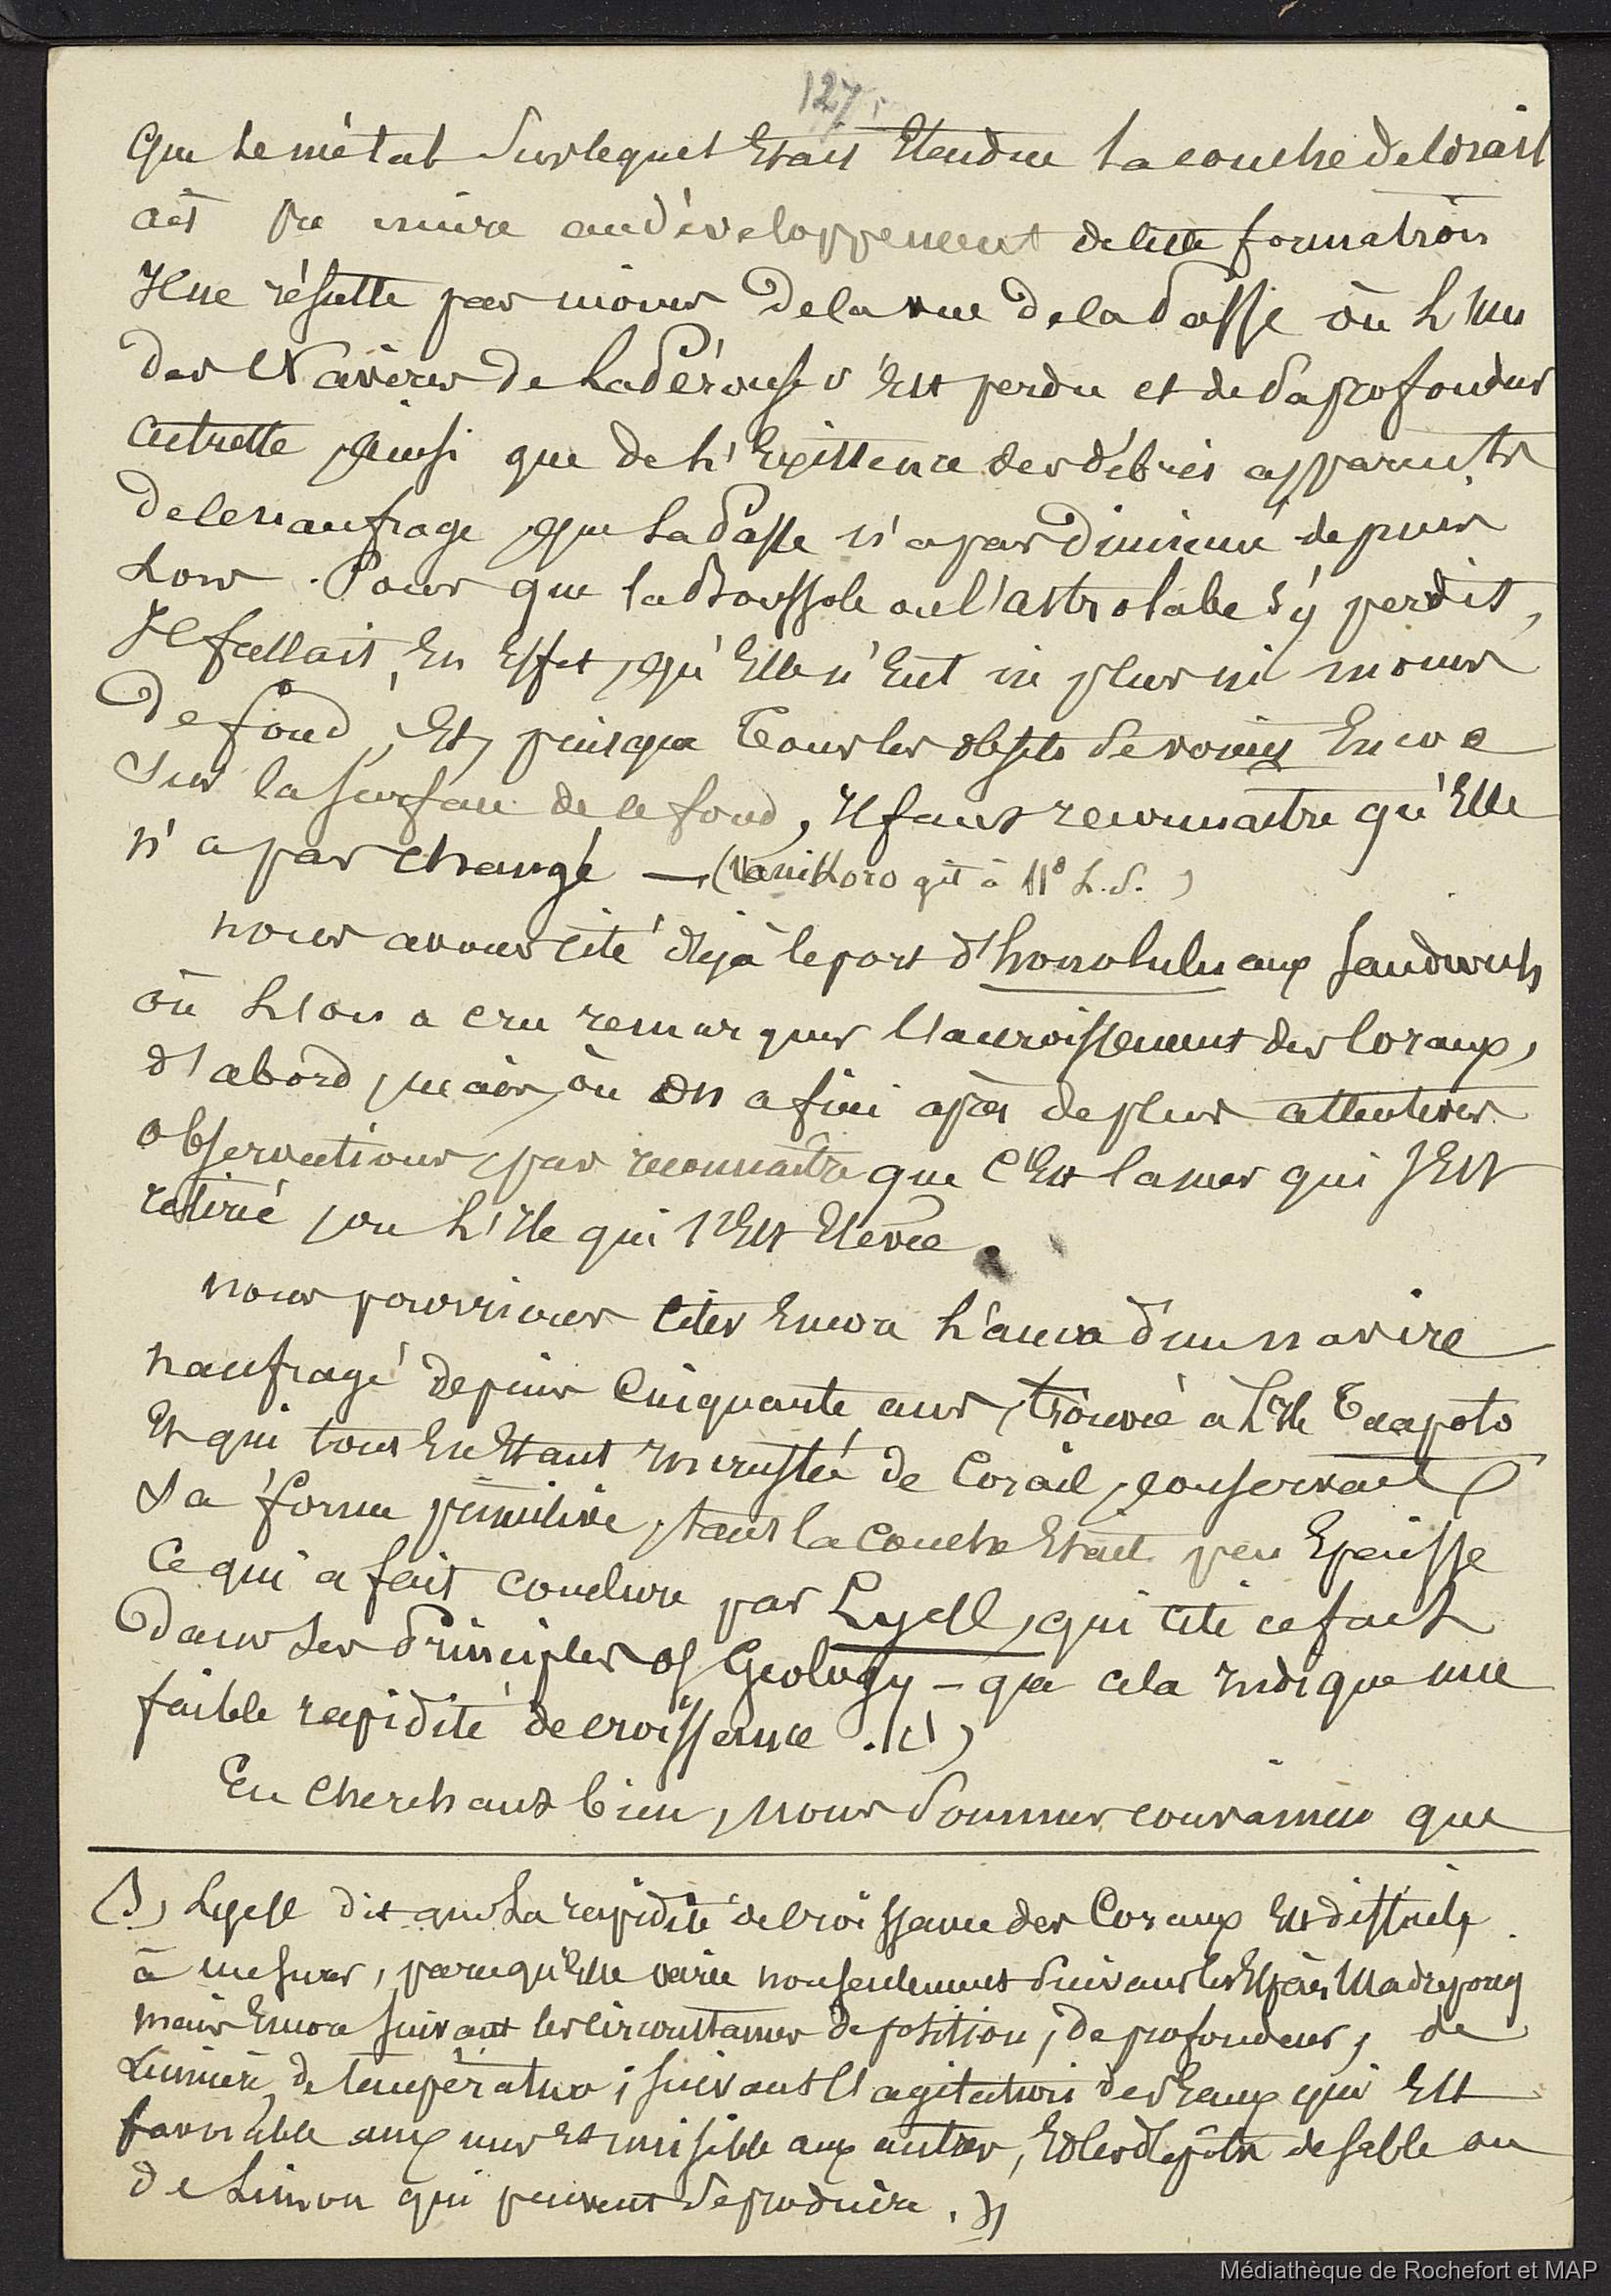 127
Que le métal sur lequel était étendue la couche de corail
ait pu nuire au développement de cette formation
Il ne résulte pas moins de la vue de la Passe où l'un
des Navires de La Pérouse s'est perdu et de sa profondeur
actuelle, ainsi que de l'existence des débris apparents
de ce naufrage, que la Passe n'a pas diminué depuis
lors. Pour que la Boussole ou l'astrolabe s'y perdit,
Il fallait, en effet, qu'elle n'eut ni plus ni moins
de fond, et, puisque tous les objets se voient encore
sur la surface de ce fond, il faut reconnaitre qu'elle
n'a pas changé — (Vanikoro gît à 11° L.S.)
nous avons cité déjà le port d'honolulu aux Sandwich
où l'on a cru remarquer l'accroissement des coraux,
d'abord, mais, où on a fini après de plus attentives
observations, par reconnaitre que c'est la mer qui s'est
retirée, ou l'île qui s'est élevée.
nous pourrions citer encore l'ancre d'un navire
naufragé depuis cinquante ans, trouvée à l'île Taapoto
Et qui tout en étant incrustée de corail, conservait
sa forme primitive, tant la couche était peu épaisse
Ce qui a fait conclure par Lyell, qui cite ce fait
dans ses Principles of Geology – que cela indique une
faible rapidité de croissance. (1)
En cherchant bien, nous sommes convaincu que
(1) Lyell dit que la rapidité de croissance des Coraux est difficile
à mesurer, parcequ'elle varie non seulement suivant les espèces Madrepores
mais encore suivant les circonstances de position, de profondeur, de
lumière, de température ; suivant l'agitation des Eaux qui est
favorable aux unes et nuisible aux autres, et les dépôts de sable ou
de limon qui peuvent se produire. »